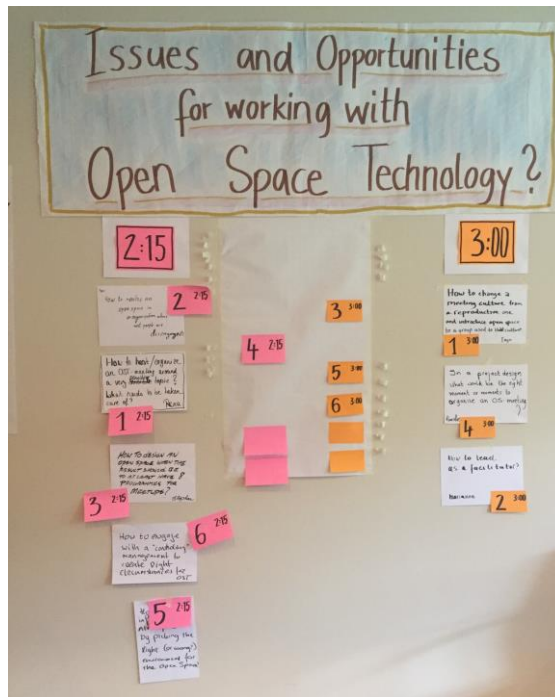 Issues and Opportunities
for working with
Open Space Technology?
2:15
How to
open space in
organisation when
people are
disengaged
2 2:15
How to host/organize
an OST meeting around
a very topic?
What needs to be taken
care of?
1 2:15
HOW TO DESIGN AN
OPEN SPACE WHEN THE
RESULT SHOULD BE
AT LEAST HAVE 8
PROGRAMMES FOR
MEETUPS?
3 2:15
How to engage
with a
management to
create right
circumstances for
OST
6 2:15
5 2:15
by picking the
right (or wrong!)
environment for
the Open Space?
4 2:15
3 3:00
5 3:00
6 3:00
3:00
How to change a
meeting culture from
a reproductive one
and introduce open space
to a group used to
1 3:00
In a project design
what would be the right
moment or moments to
organise an OS meeting
?
4 3:00
How to lead
as a facilitator?
Marianne
2 3:00